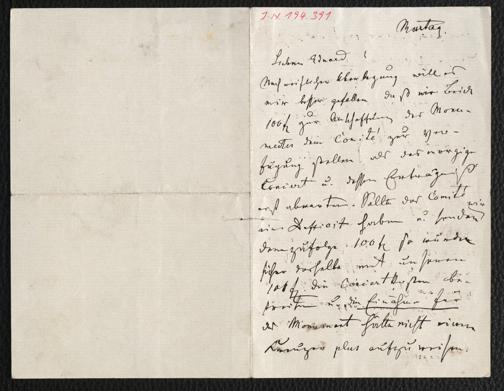 I.N. 194.391
Montag.
Lieber Eduard!
Nach reiflicher Überlegung will es
mir besser gefallen daß wir beide
100 fl zur Anschaffung des Monu-
mentes dem Comité zur Ver-
fügung stellen als das
Concert u. dessen Erträgniß
erst abwarten. Sollte das Comité
ein Deficit haben u.
demzufolge 100 fl so würde
sicher dasselbe mit unseren
100 fl die Concertkosten be-
streiten u. die Einnahme für
das Monument hätte nicht einen
Kreuzer plus aufzuweisen.